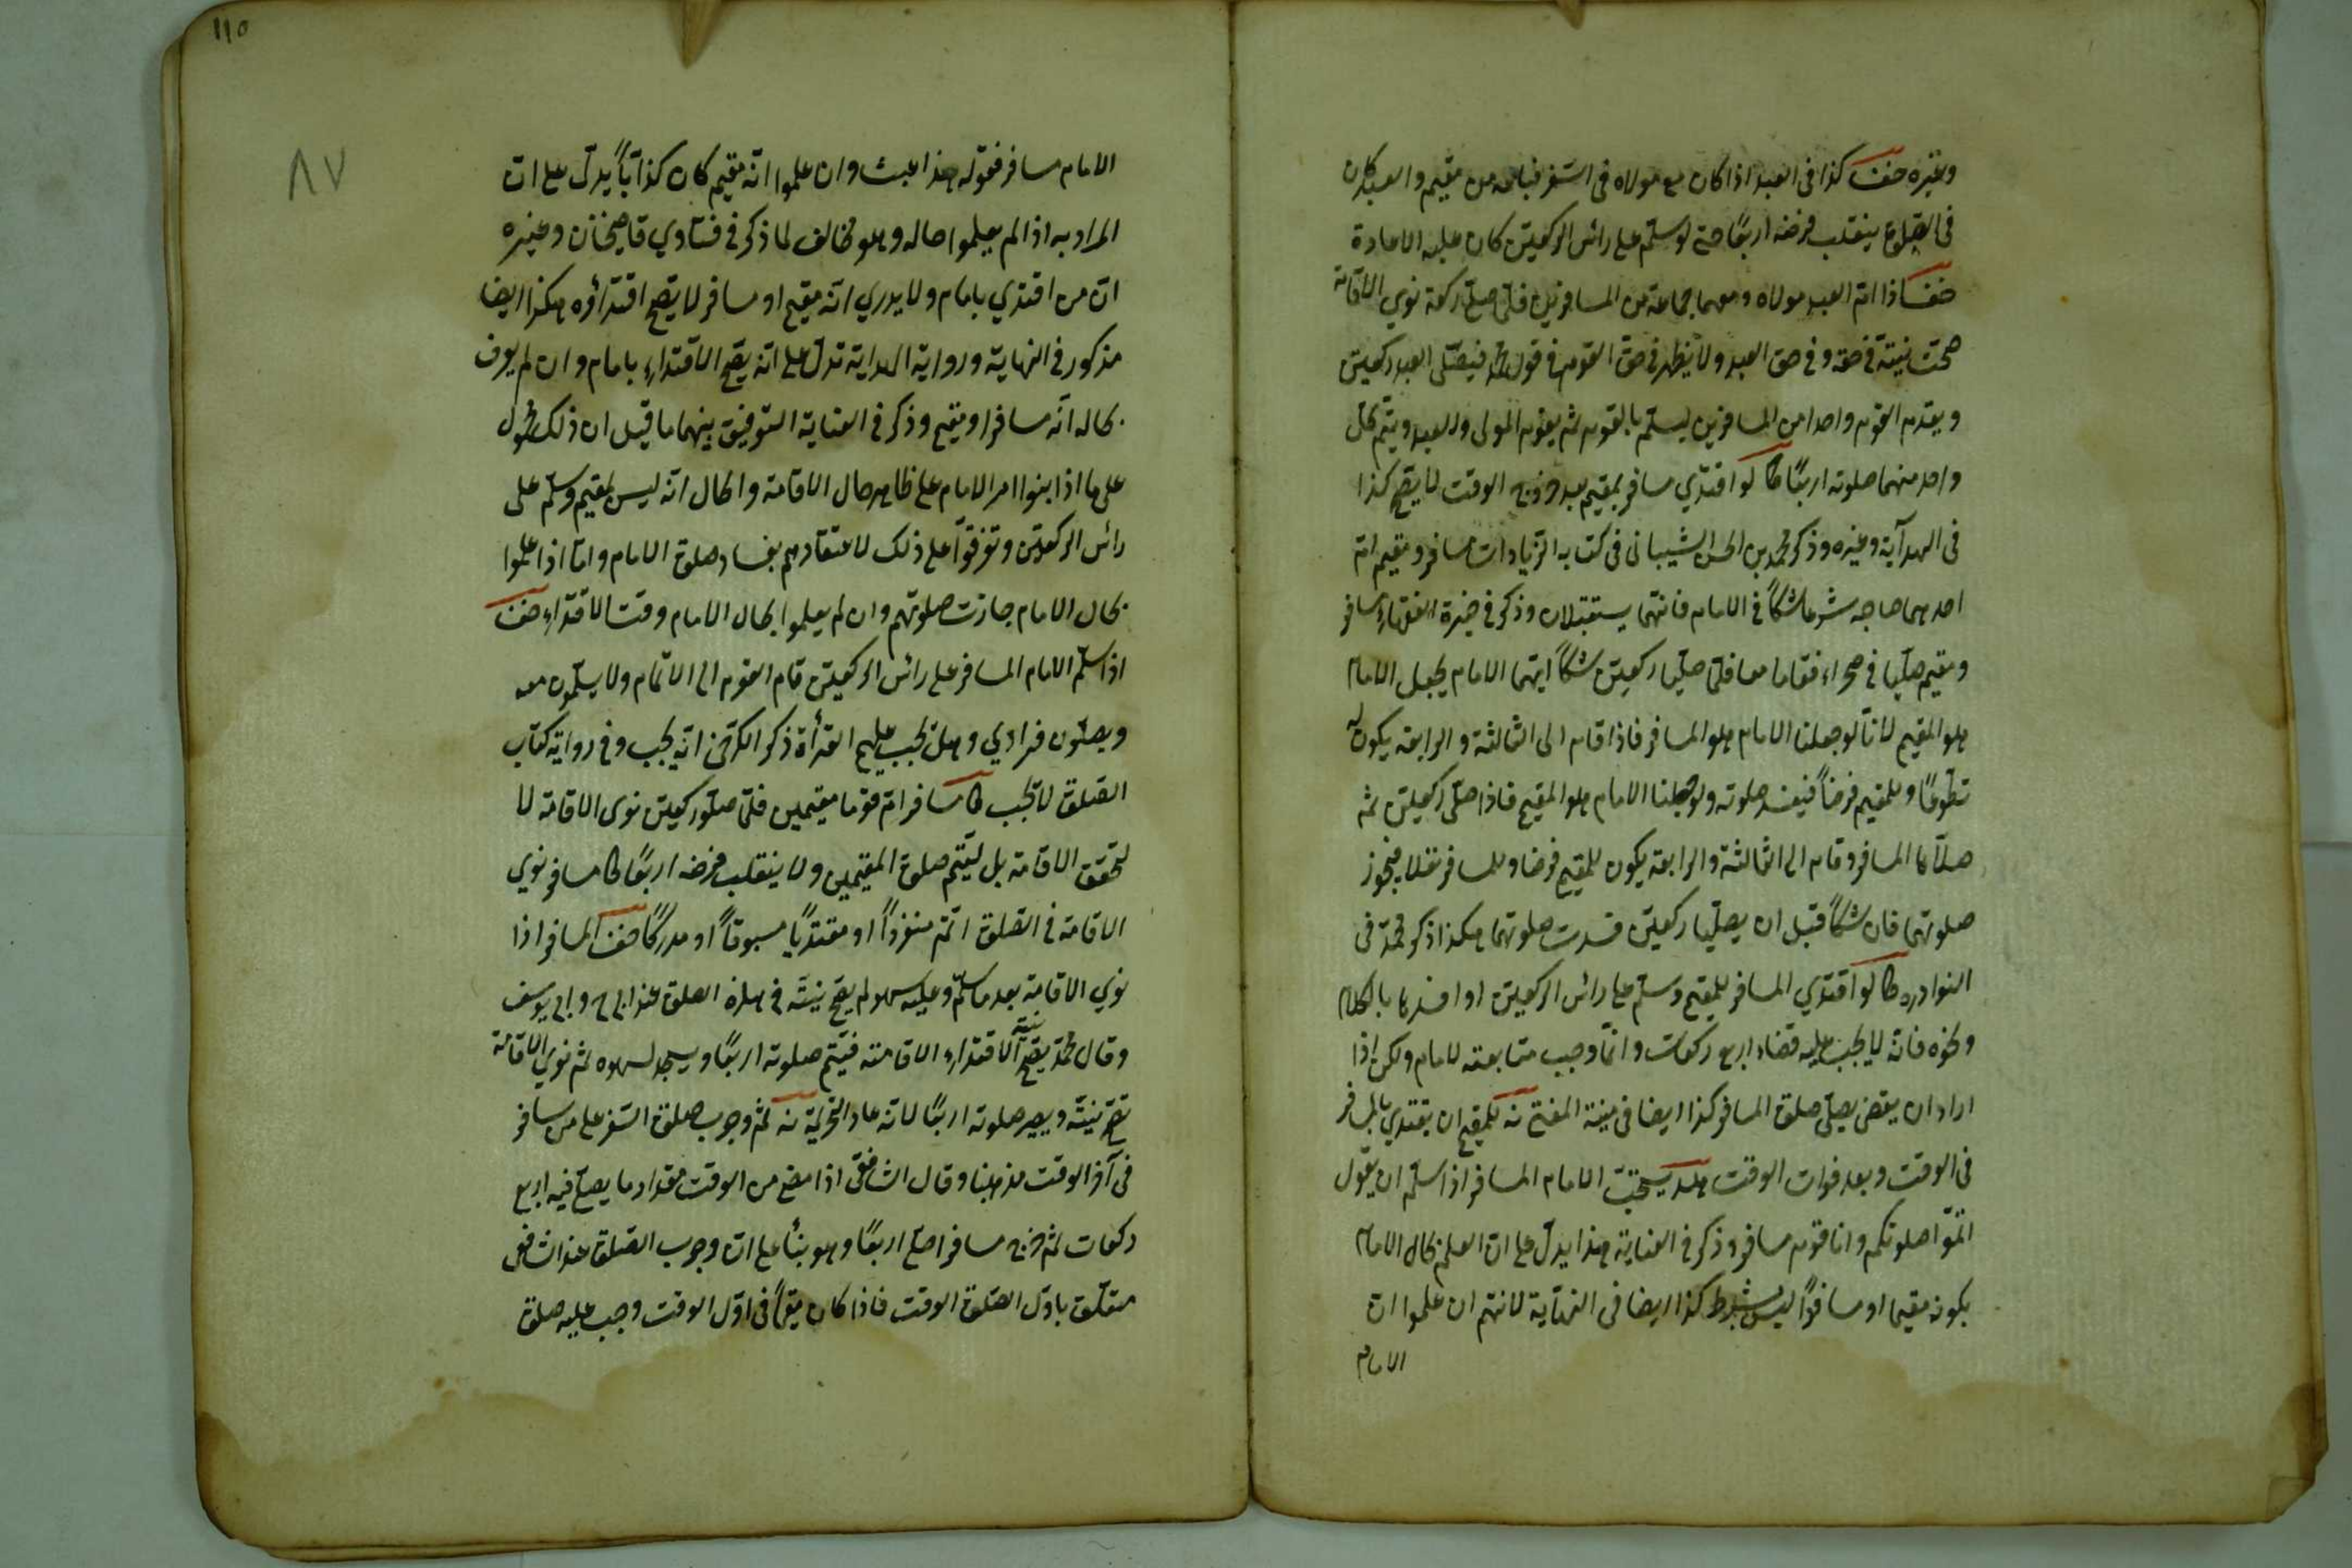 وغيره خف كذا في العبد اذا كان مع مولاه في السفر فباعه من مقيم والعبد كان
في الصلوة ينقلب فرضه اربعًا حتى لو سلّم على رائس الركعتين كان عليه الاعادة
خف اذا امّ العبد مولاه ومعهما جماعة من المسافرين فلمّا صلّى ركعة نوى الاقامة
صحّت نيته في حقه وفي حق العبد ولا يظهر في حق القوم في قول محمد فيصلّى العبد ركعتين
ويقدم القوم واحدا من المسافرين ليسلّم بالقوم ثم يقوم المولى والعبد ويتم كل
واحد منهما صلوته اربعًا ط لو اقتدي مسافر بمقيم بعد خروج الوقت لا يصح كذا
في الهدآية وغيره وذكر محمد بن الحسن الشيباني في كتابه الزيادات مسافر ومقيم امّ
احدهما صاحبه شرعا شكّا في الامام فانهما يستقبلان وذكر في ذخيرة الفقهاء مسافر
ومقيم صلّيا في صحراء فقاما معا فلمّا صلّيا ركعتين شكّا ايهما الامام يجعل الامام
هو المقيم لانّا لو جعلنا الامام هو المسافر فاذا قام الى الثالثة والرابعة يكون له
تطوّعًا وللمقيم فرضًا فيفسد صلوته ولو جعلنا الامام هو المقيم فاذا صلّى ركعتين ثم
صلّاها المسافر وقام الى الثالثة والرابعة يكون للمقيم فرضا وللمسافر نفلا فيجوز
صلوتهما فان شكّا قبل ان يصلّيا ركعتين فسدت صلوتهما هكذا ذكر محمّد في
النوادره ط لو اقتدي المسافر للمقيم وسلّم على رائس الركعتين او افسدها بالكلام
ونحوه فانه لا يجب عليه قضاء اربع ركعات وانّما وجب متابعته للامام ولكن اذا
اراد ان يقضى يصلّى صلوة المسافر كذا ايضا في منية المفتى نه للمقيم ان يقتدي بالمسافر
في الوقت وبعد فوات الوقت هد يستحبّ الامام المسافر اذا سلّم ان يقول
اتمّوا صلوتكم وانا قوم مسافر وذكر في العناية هذا يدلّ على انّ العلم بحال الامام
بكونه مقيما او مسافرًا ليس بشرط كذا ايضا في النهآية لانهم ان علموا انّ
الامام
١١٥
٨٧
الامام مسافر فقوله هذا عبث وان علموا انّه مقيم كان كذآبًا يدلّ على انّ
المراد به اذا لم يعلموا حاله وهو مخالف لما ذكر في فتاوي قاضيخان وغيره
انّ من اقتدي بامام ولا يدري انّه مقيم او مسافر لا يصحّ اقتدائه هكذا ايضا
مذكور في النهاية ورواية الهداية تدلّ على انّه يصح الاقتداء بامام وان لم يعرف
بحاله انّه مسافر او مقيم وذكر في العناية التوفيق بينهما ما قيل ان ذلك محمول
على ما اذا بنوا امر الامام على ظاهر حال الاقامة والحال انّه ليس بمقيم وسلّم على
رائس الركعتين وتفرقوآ على ذلك لاعتقادهم بفساد صلوة الامام وامّا اذا علموا
بحال الامام جازت صلوتهم وان لم يعلموا بحال الامام وقت الاقتداء خف
اذا سلّم الامام المسافر على رائس الركعتين قام القوم الى الاتمام ولا يسلّمون معه
ويصلّون فرادي وهل يجب عليهم القرأة ذكر الكرخىّ انّه يجب وفي رواية كتاب
الصّلوة لا يجب ط مسافر امّ قوما مقيمين فلمّا صلّى ركعتين نوى الاقامة لا
لتحقق الاقامة بل ليتمّ صلوة المقيمين ولا ينقلب فرضه اربعًا ط مسافر نوي
الاقامة في الصّلوة اتمّ منفردًا او مقتديًا مسبوقًا او مدركًا خف المسافر اذا
نوي الاقامة بعد ما سلّم وعليه سهو لم يصح نيته في هذه الصلوة عند ابي ح وابي يوسف
وقال محمّد يصحّ نية الاقتداء الاقامته فيتمّ صلوته اربعًا ويسجد لسهوه ثم نوي الاقامة
تصح نيته ويصير صلوته اربعًا لانه عاد التحريمة نه ثم وجوب صلوة السّفر على من سافر
في آخر الوقت مذهبنا وقال الشافعى اذا مضى من الوقت مقدار ما يصلّى فيه اربع
ركعات ثم خرج مسافرا صلّى اربعًا وهو بنأ على انّ وجوب الصّلوة عند الشافعى
متعلّق باوّل الصّلوة الوقت فاذا كان مقيمًا في اوّل الوقت وجب عليه صلوة